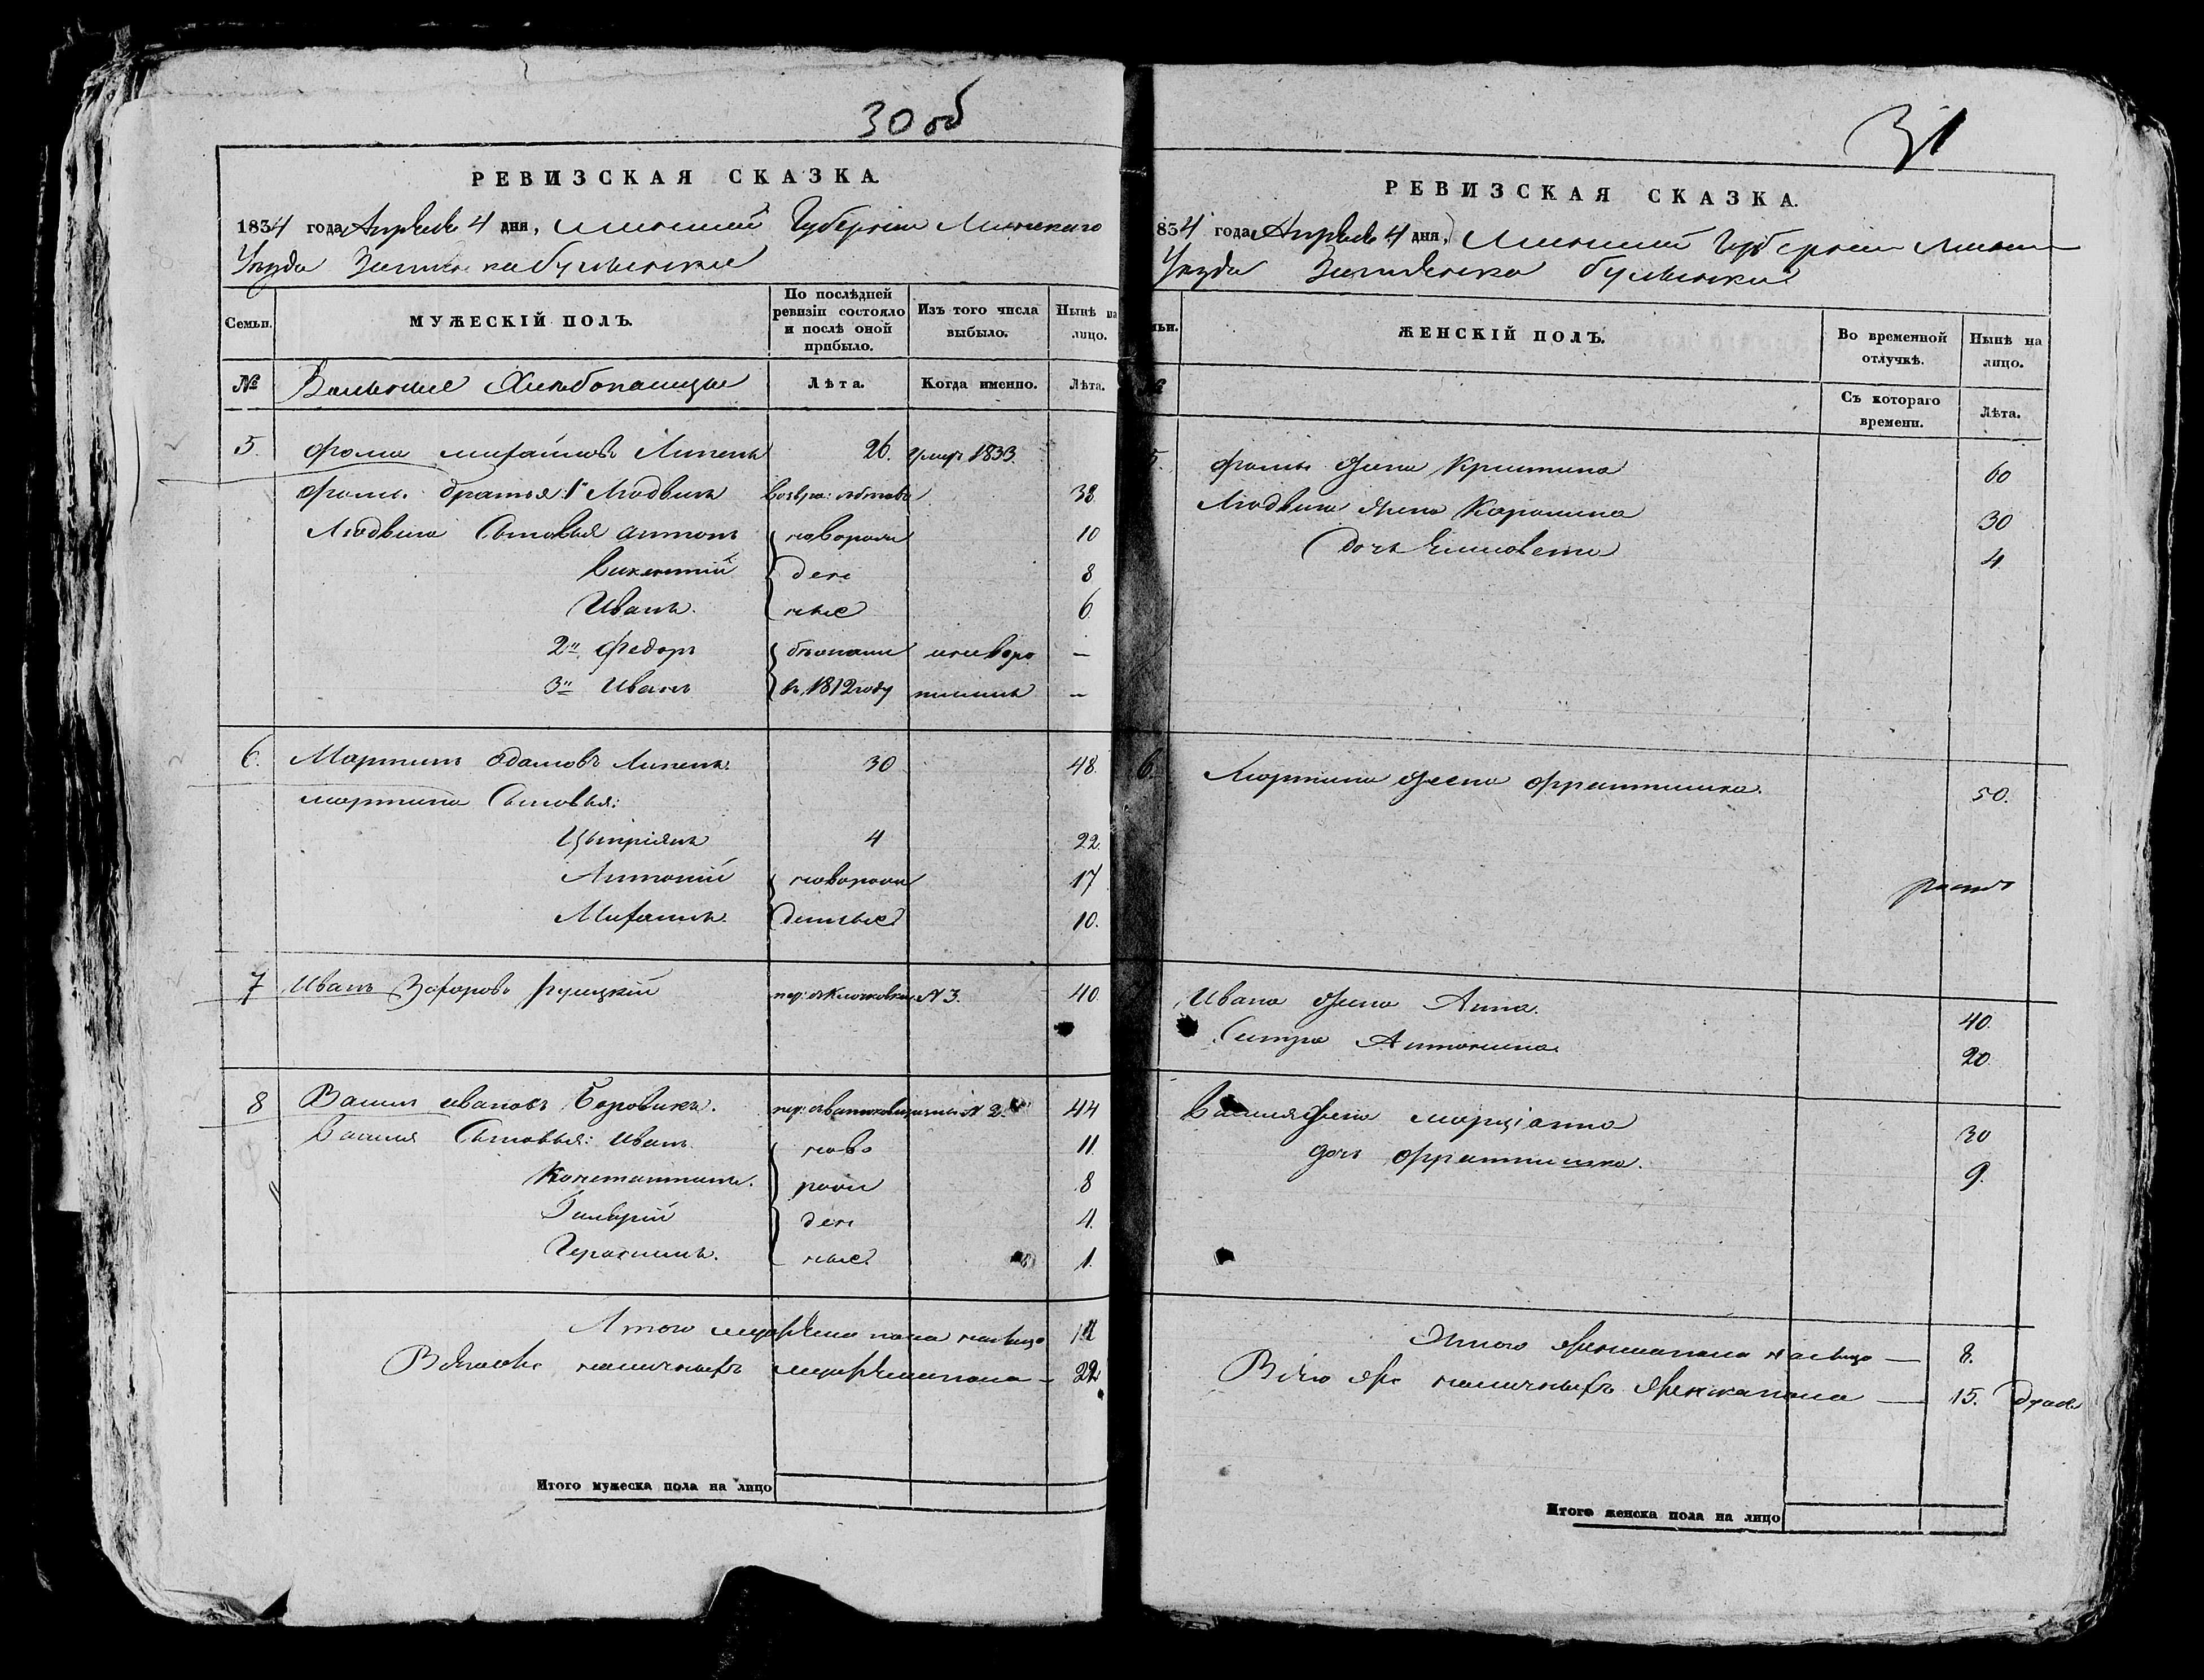 30 об
РЕВИЗСКАЯ СКАЗКА.
1834 года Апреля 4 дня, Минской Губернии Минского
Уезда
Семьи.
МУЖЕСКІЙ ПОЛЪ.
По послѣдней ревизіи состояло и послѣ оной прибыло.
Изъ того числа выбыло.
Нынѣ на лицо.
№
Вольные Хлебопашцы
Лѣта.
Когда именно.
Лѣта.
5. Фома Михайловъ Липень 26. умеръ 1833.
Фомы братья: 1й Людвикъ 38
Людвика Сыновья Антонъ новорож 10
Викентий ден 8
Иванъ. ные 6
2й Федоръ бежали и не воро —
3й Иванъ въ 1812 году тились —
6. Мартинъ Адамовъ Липень. 30 48.
Мартина Сыновья:
Цыпріянъ 4 22.
Антоній новорож 17
Михаилъ. денные 10.
7 Иванъ Захоровъ Рулицкій №3. 40.
8 Василь Ивановъ Боровикъ. № 2. 44
Василя Сыновья: Иванъ ново 11.
Константинъ. рож 8
ден 4.
Герасимъ. ные. 1.
Итого мужеска пола на лицо
наличныхъ мужеска пола — 22
Итого мужеска пола на лицо
31
РЕВИЗСКАЯ СКАЗКА.
834 года Апреля 4 дня, Минской Губернии
Уезда
ЖЕНСКІЙ ПОЛЪ.
Во временной отлучкѣ.
Нынѣ на лицо.
Съ котораго времени.
Лѣта.
5. Фомы жена Кристина 60
Людвика жена Каролина 30
дочь Елисовета 4
6. Мартина жена Франтишка. 50.
Ивана жена Анна. 40.
Сестра Антонина. 20.
Василя жена Марціанна 30
дочь Франтишка. 9.
Итого женска пола на лицо — 8.
Всего же наличныхъ женска пола — 15. душъ
Итого женска пола на лицо